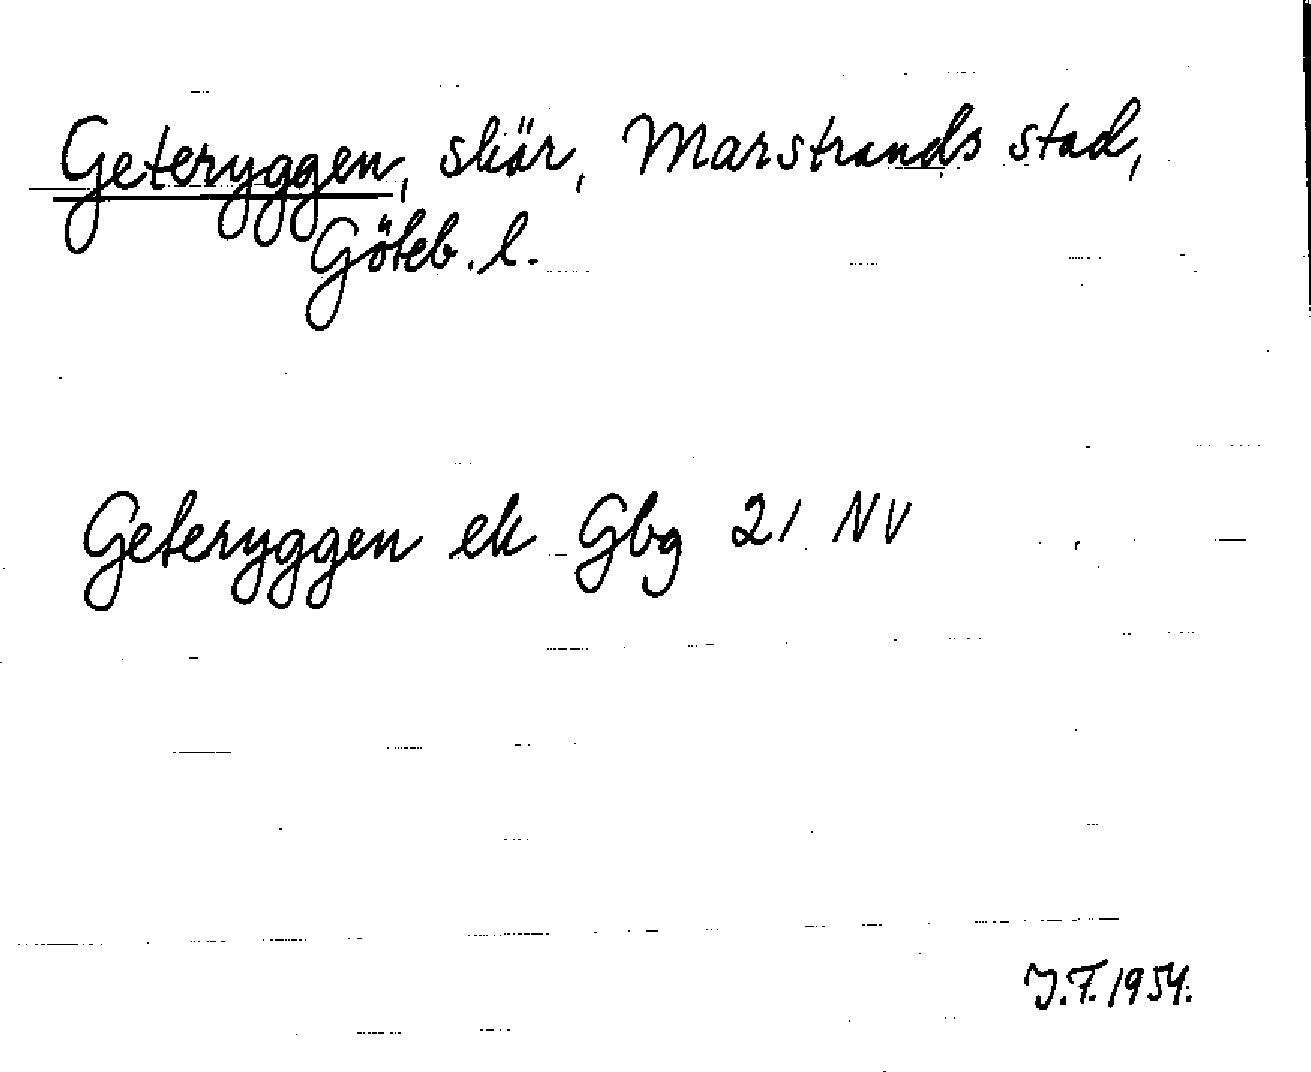 Geteryggen, skär, Marstrands stad,
Göteb. l.
Geteryggen ek Gbg 21 NV
J.F. 1954.